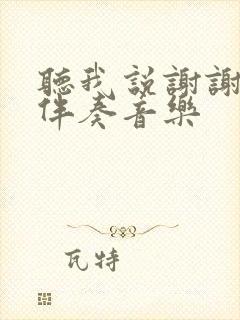 聽我説謝謝
伴奏音樂
瓦特